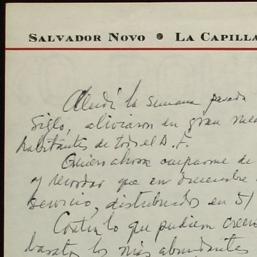 SALVADOR NOVO • LA CAPILLA
Aludí la semana pasada
Siglo, aliviaron en gran
habitantes de todo el D. F.
Quiero ahora ocuparme de
y recordar que en diciembre
servicio, distribuidos en 51
Contra lo que pudiera creer
baratos los más abundantes